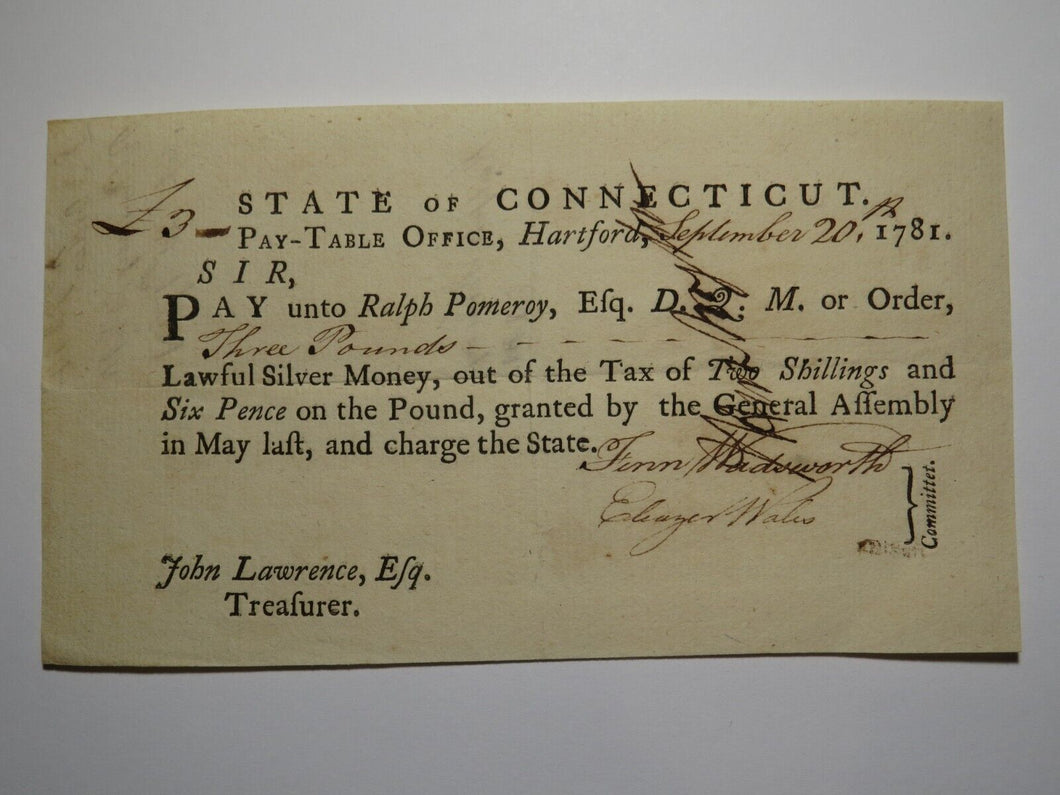 STATE OF CONNECTICUT.
£3 PAY-TABLE OFFICE, Hartford, September 20, 1781.
SIR,
PAY unto Ralph Pomeroy, Eſq. D. Q. M. or Order,
Three Pounds
Lawful Silver Money, out of the Tax of Two Shillings and
Six Pence on the Pound, granted by the General Aſſembly
in May laſt, and charge the State.
Fenn Wadsworth
Eleazer Wales
Committee.
John Lawrence, Eſq.
Treaſurer.